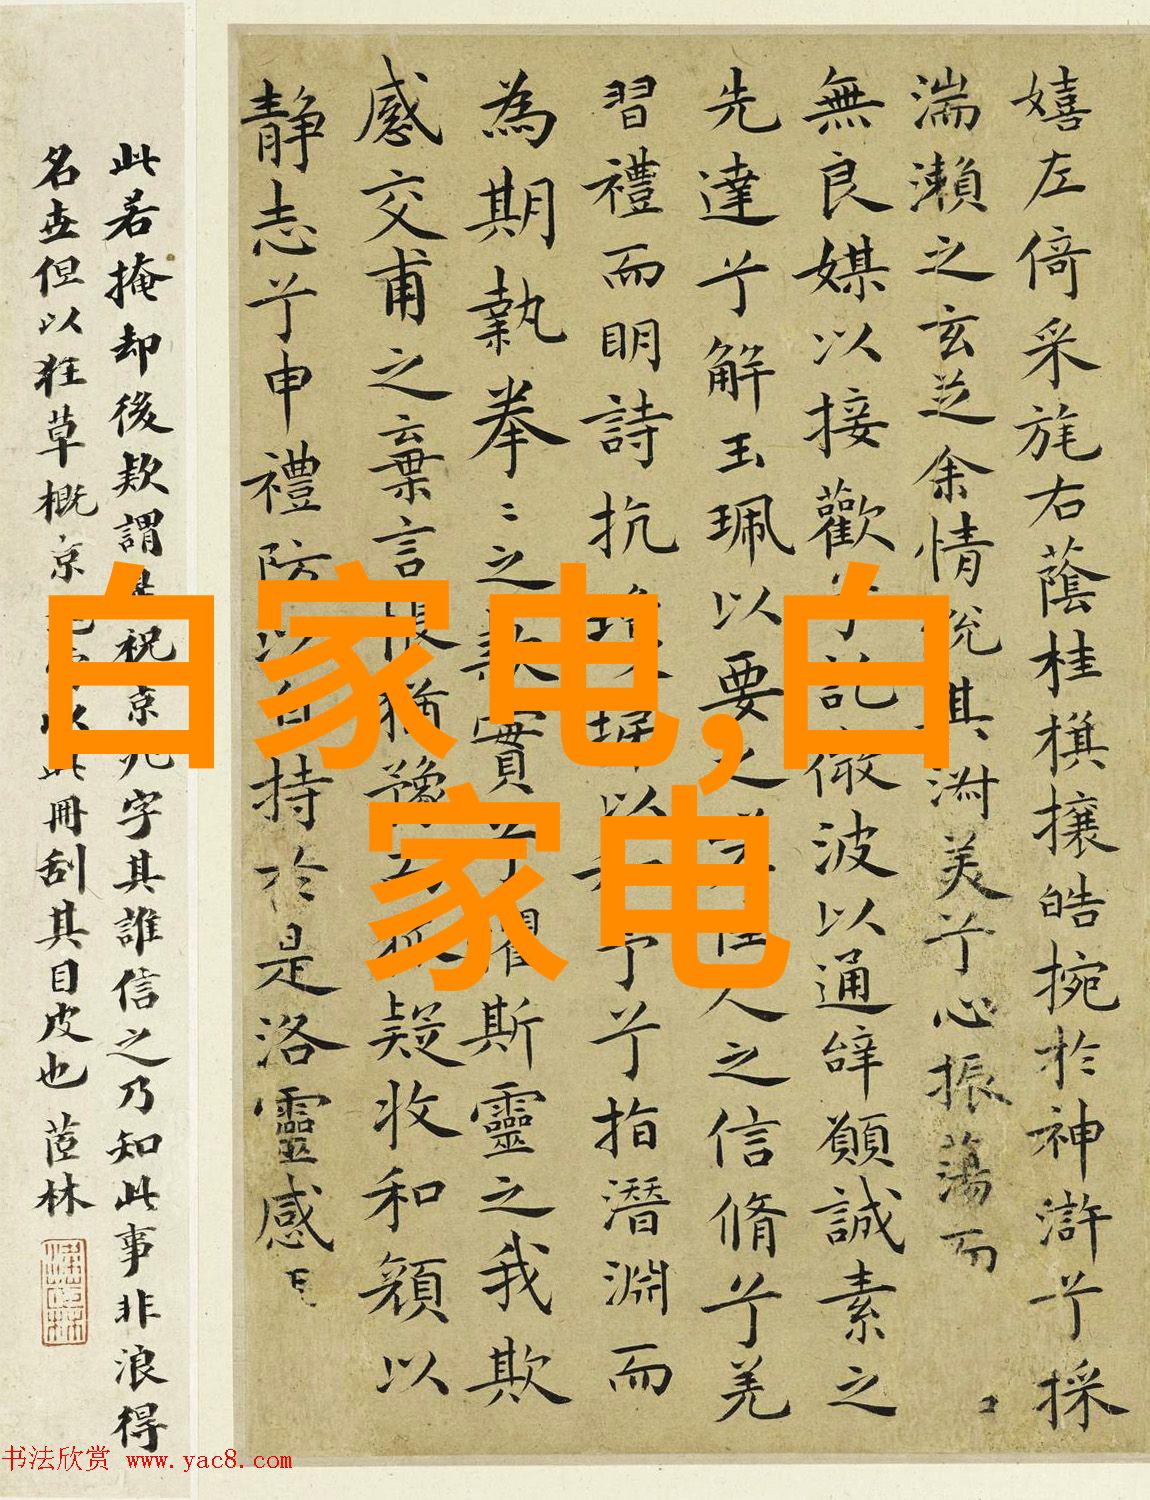 嬉左倚采旄右蔭桂旗攘皓捥於神滸兮採
湍瀨之玄芝余情悅其淑美兮心振蕩而
無良媒以接歡兮託微波以通辭願誠素之
先達兮解玉珮以要之佳人之信脩兮羌
習禮而明詩抗以予兮指潛淵而
為期執拳〻之款實兮懼斯靈之我欺
感交甫之棄言悵猶豫而狐疑收和顏以
靜志兮申禮防以自持於是洛靈感
此若掩却後款謂是祝京兆字其誰信之乃知此事非浪得
名世但以狂草概京兆此冊刮其目皮也 茝林
白家电,白
家电
书法欣赏 www.yac8.com